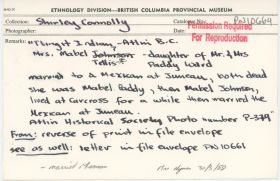 ETHNOLOGY DIVISION—BRITISH COLUMBIA PROVINCIAL MUSEUM
Collection: Shirley Connolly Catalogue No: PN10669
Permission Required
For Reproduction
Remarks: "Tlingit Indian, Atlin B.C.
Mrs. Mabel Johnson - daughter of Mr. & Mrs
Paddy Ward
married to a Mexican at Juneau, both dead
she was Mabel Paddy, then Mabel Johnson,
lived at Carcross for a while then married the
Mexican at Juneau.
Atlin Historical Society Photo number P-379"
From: reverse of print in file envelope
see as well: letter in file envelope PN10661